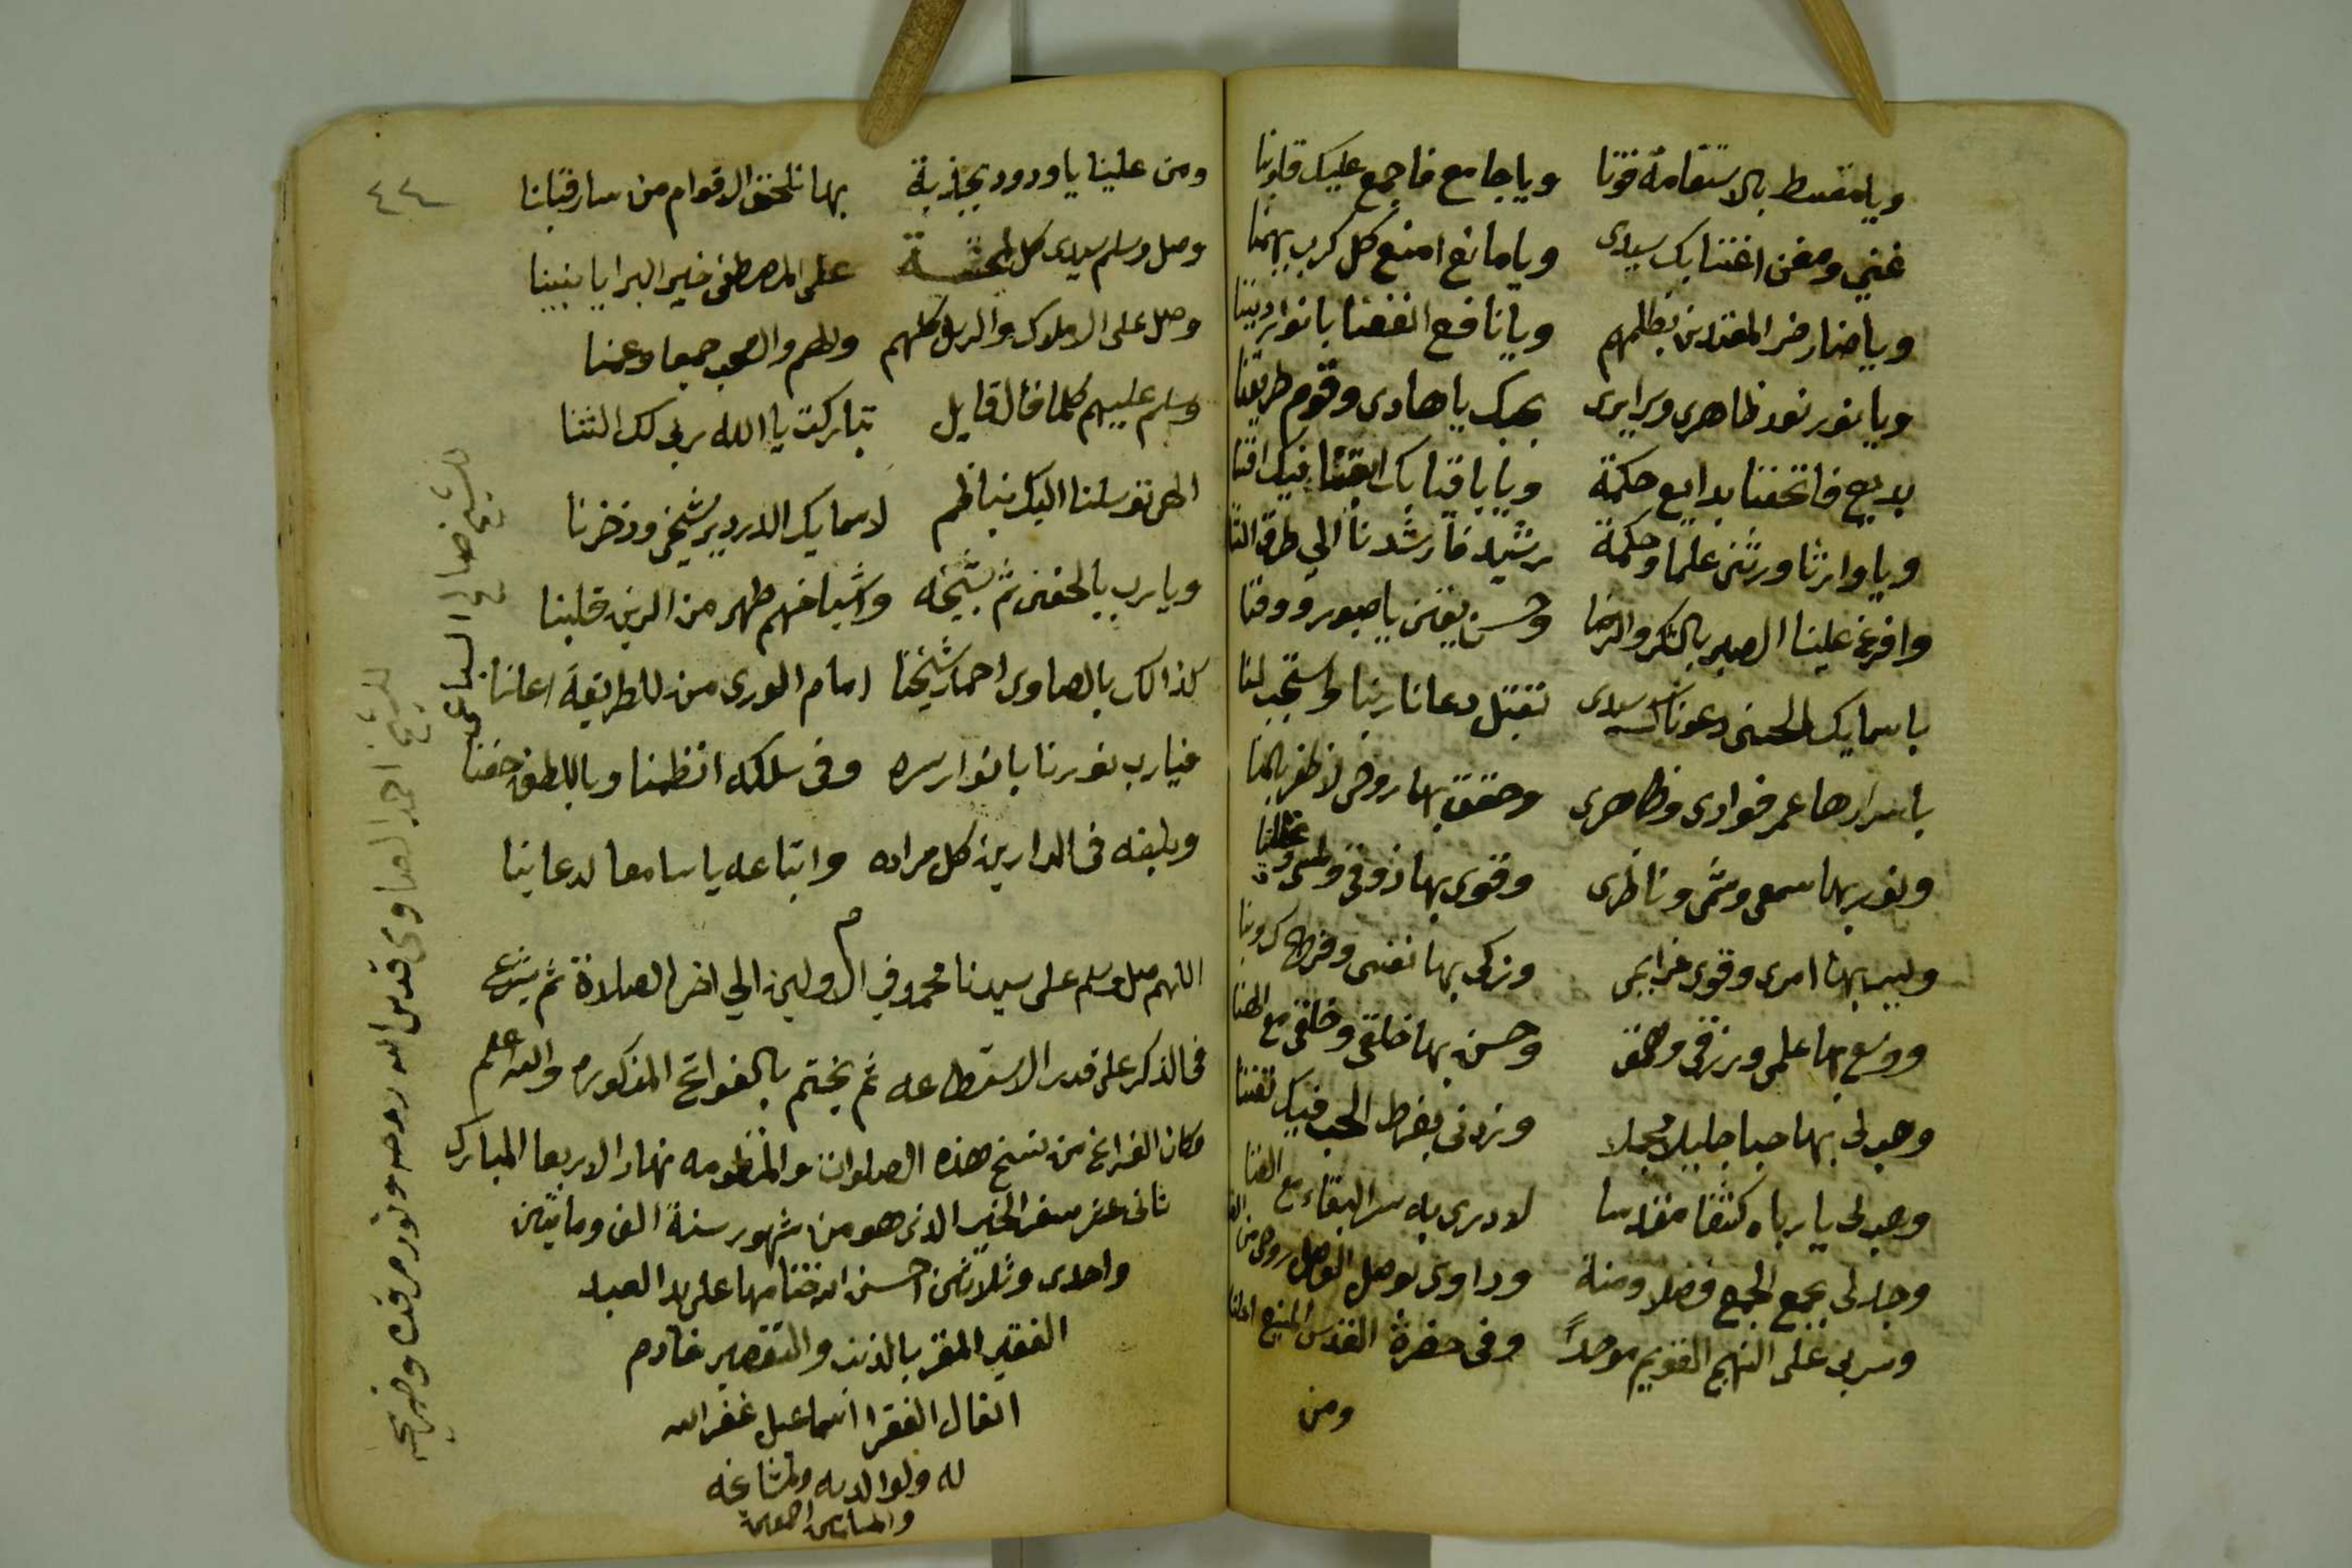 ويا مقسط بالاستقامة قوّنا ويا جامع فاجمع عليك قلوبنا
غني ومغن اغننا بك سيدى ويا مانع امنع كل كرب يهمنا
ويا ضار ضر المعتدين بظلمهم ويا نافع انفعنا بانوار ديننا
ويا نور نور ظاهرى وسرايرى بحبك يا هادى وقوم طريقنا
بديع فاتحفنا بدايع حكمة ويا باقيا بك ابقنا فيك افننا
ويا وارثا ورثنى علما وحكمة رشيد فارشدنا الي طرق الثنا
وافرغ علينا الصبر بالشكر والرضا وحسن يقين يا صبور ووفنا
باسمايك الحسنى دعوناك سيدى تقبل دعانا ربنا واستجب لنا
باسرارها عمر فوادى وظاهرى وحقق بها روحى لاظفر بالمنا
ونور بها سمعى وشمى وناظرى وقوى بها ذوقى ولمسى وعقلنا
ويسر بها امرى وقوى عزايمى وزكى بها نفسى وفرج كروبنا
ووسع بها علمى ورزقى وهمتى وحسن بها خلقى وخلقى مع الهنا
وهب لى بها حبا جليلا مجملا وزدنى بفرط الحب فيك تفننا
وهب لى يا رباه كشفا مقدسا لادرى به سر البقاء مع الفنا
وجد لى بجمع الجمع فضلا ومنة وداوى بوصل الوصل روحى من
وسر بى على النهج القويم موحدًا وفى حضرة القدس المنيع احلنا
ومن
٤٤
ومن علينا يا ودود بجذبة بها نلحق الاقوام من سار قبلنا
وصل وسلم سيدى كل لمحة على المصطفى خير البرايا نبينا
وصل على الاملاك والرسل كلهم والهم والصحب جمعا وعمنا
وسلم عليهم كلما قال قايل تباركت يا الله ربى لك الثنا
الهى توسلنا اليك بناظم لاسمايك الدردير شيخى وذخرنا
ويا رب بالحفنى ثم بشيخه واشياخهم طهر من الرين قلبنا
كذالك بالصاوى احمد شيخنا امام الورى من للطريقة اعلنا
فيارب نورنا بانوار سره وفى سلكه انظمنا وباللطف حفنا
وبلغه فى الدارين كل مراده واتباعه يا سامعا لدعاينا
م
اللهم صل وسلم على سيدنا محمد في الاولين الي اخر الصلاة ثم يشرع
فى الذكر على قدر الاستطاعه ثم يختم بالفواتح المذكوره والله اعلم
وكان الفراغ من نسخ هذه الصلوات والمنظومه نهار الاربعا المبارك
ثانى عشر صفر الخير الذى هو من شهور سنة الف ومايتين
واحدى وثلاثين احسن الله ختامها على يد العبد
الفقير المقر بالذنب والتقصير خادم
الفقرا اسماعيل غفر الله
له ولوالديه ولمشايخه
والمسلمين اجمعين
للشيخ صالح السباعى
للشيخ احمد الصاوى قدس الله روحه ونور مرقده وضريحه